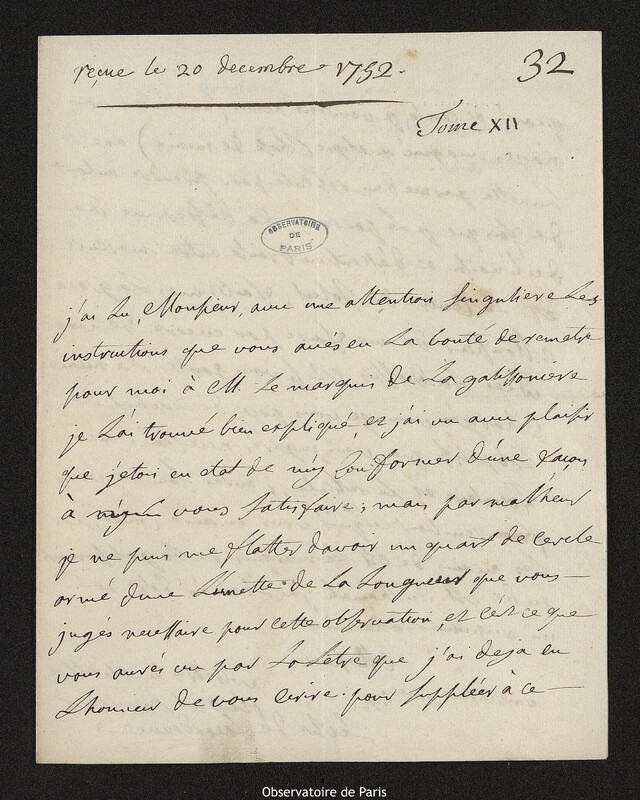 reçue le 20 decembre 1752.
32
Tome XII
OBSERVATOIRE
DE
PARIS
j'ai Lu, Monsieur, avec une attention singuliere Les
instructions que vous avés eu La bonté de remetre
pour moi à M. Le marquis de La galissoniere
je L'ai trouvé bien expliqué, et j'ai vu avec plaisir
que j'etois en etat de m'y conformer d'une façon
à vous satisfaire; mais par malheur
je ne puis me flatter davoir un quart de cercle
armé dune Lunette de La Longueur que vous
jugés necessaire pour cette observation, et c'est ce que
vous aurés vu par La Letre que j'ai deja eu
Lhonneur de vous ecrire. pour suppléer à ce
Observatoire de Paris